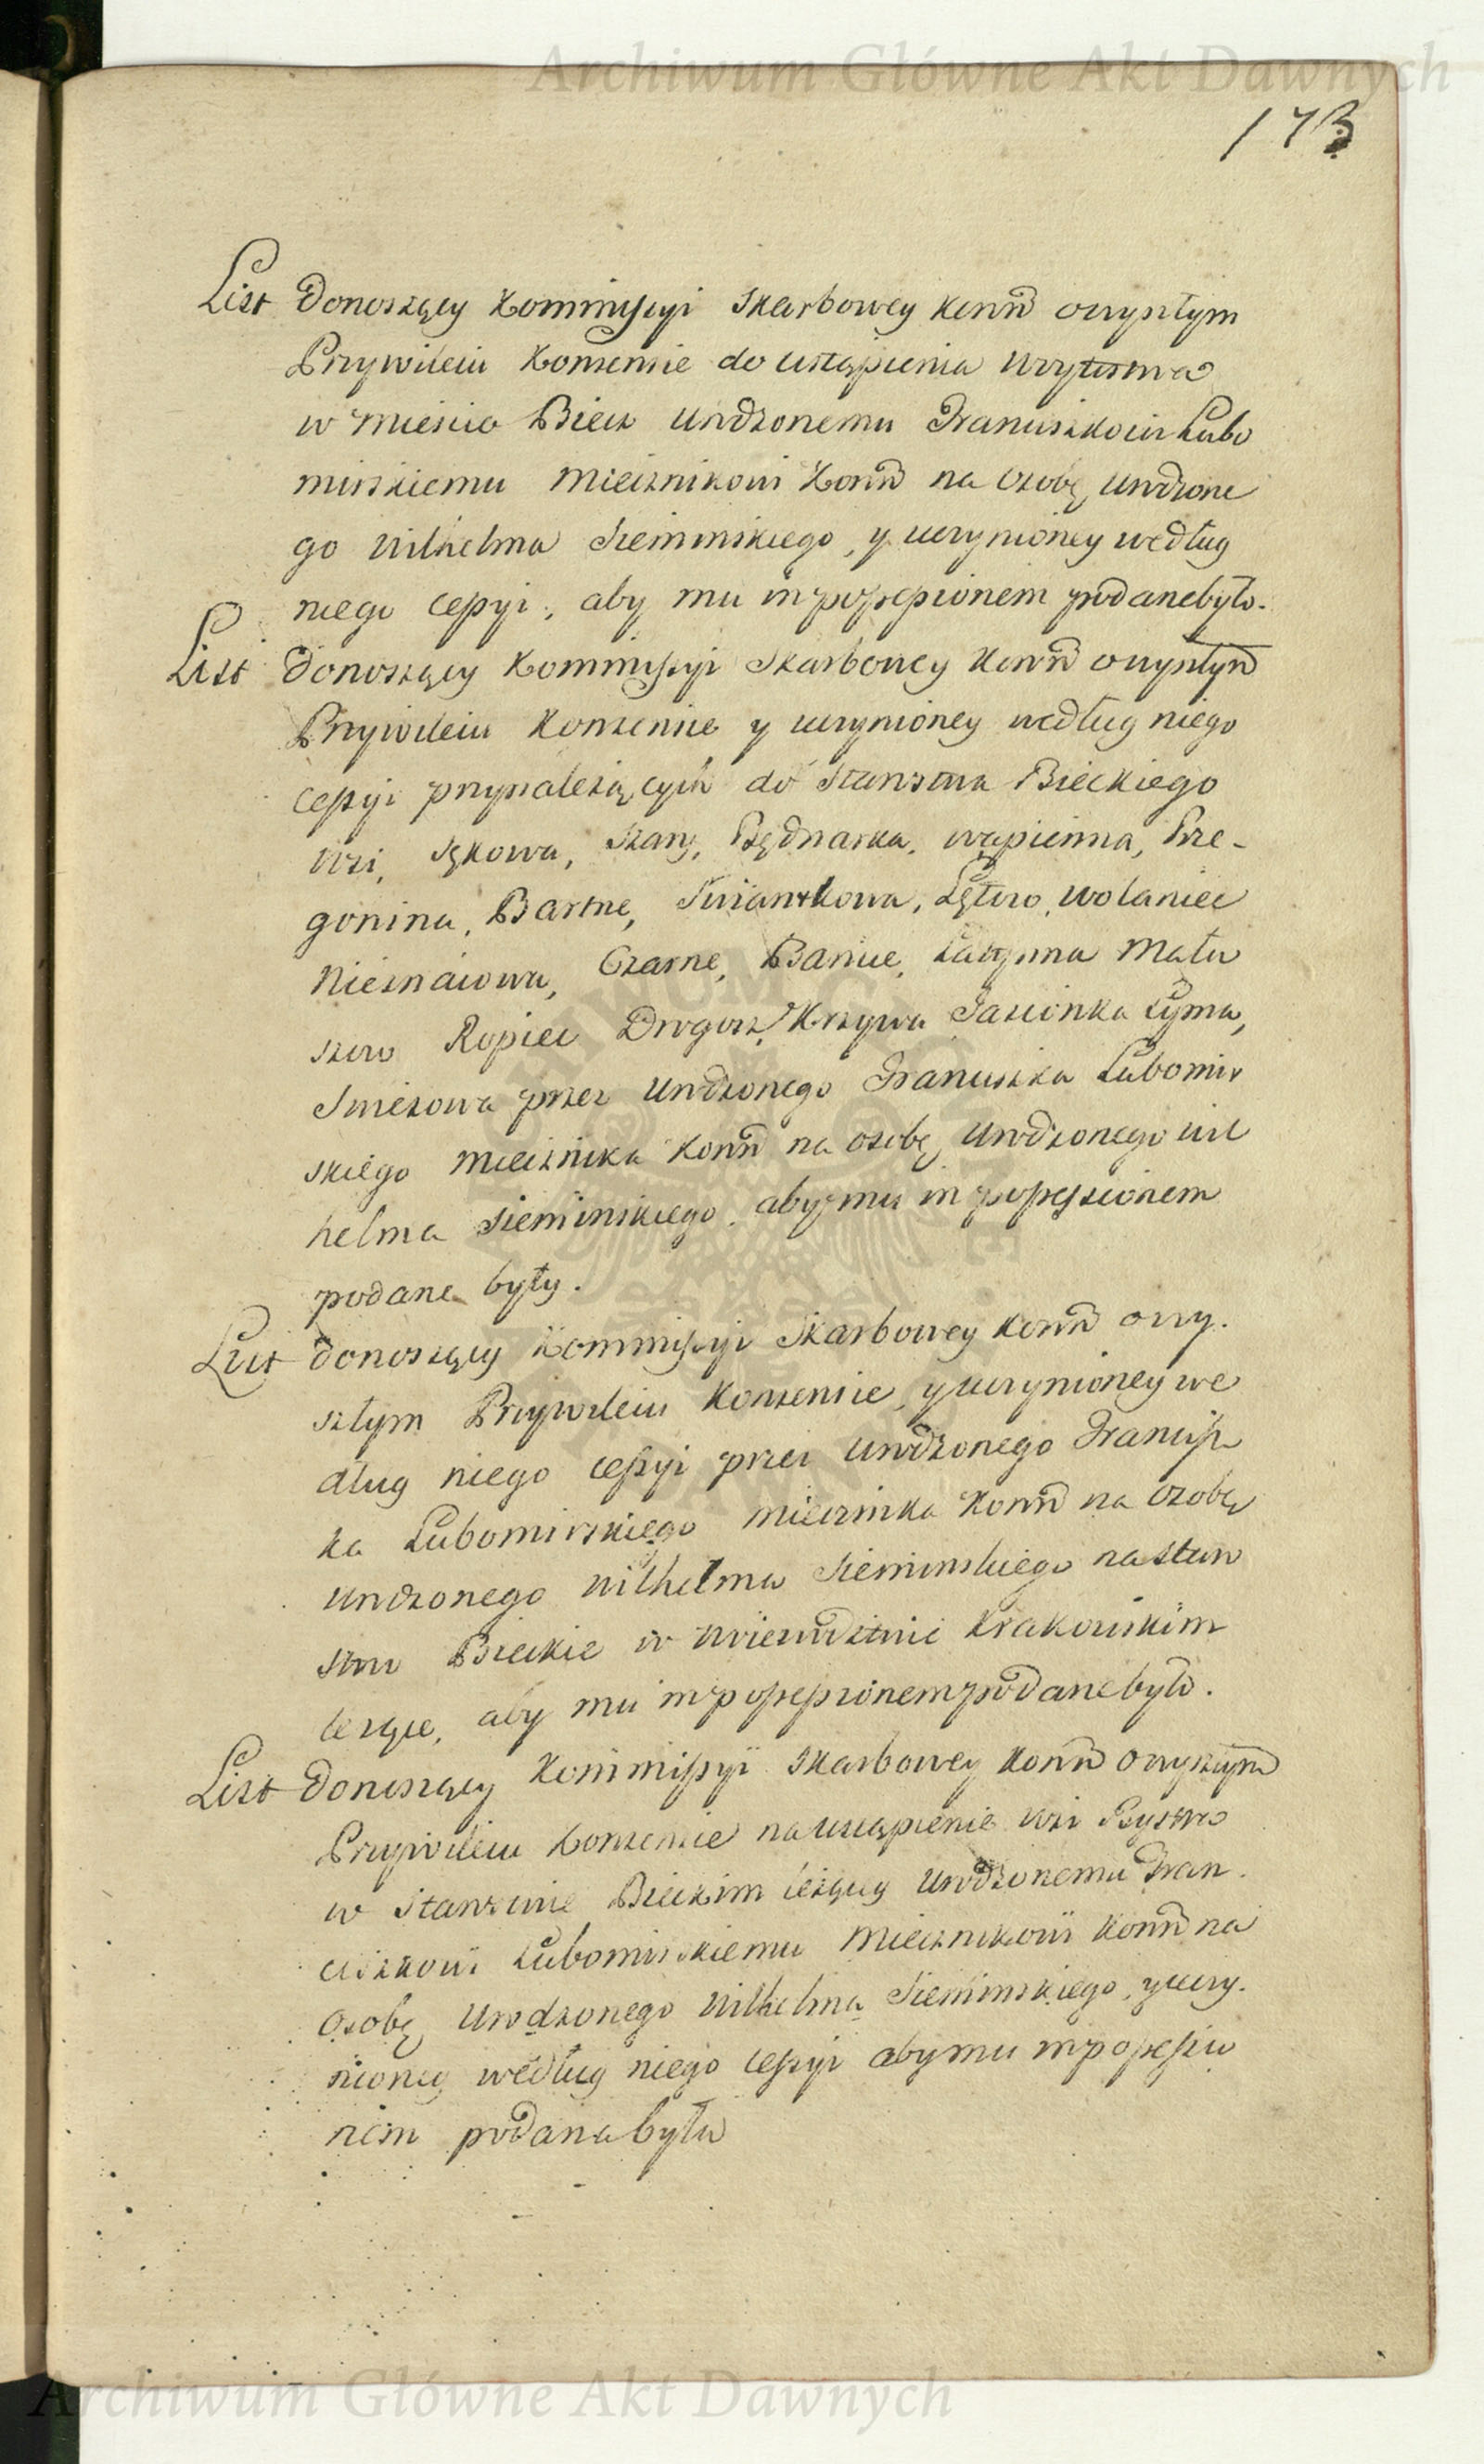 Archiwum Główne Akt Dawnych
173
List Donoszący Kommissyi Skarbowey Koronn o wyszłym
Przywileiu Konsensie do ustąpienia Woytostwa
w Mieście Biecz Urodzonemu Franciszkowi Lubo
mirskiemu Miecznikowi Koronn na Osobę Urodzone
go Wilhelma Siemieńskiego, y uczynioney według
niego Cessyi, aby mu in possessionem podane było.
List Donoszący Kommissyi Skarbowey Koronn o wyszłym
Przywileiu Konsensie y uczynioney według niego
Cessyi przynależących do Starostwa Bieckiego
Wsi, Sękowa, Siary, Bednarka, Wapienna, Prze-
gonina, Bartne, Świątkowa, Wołowiec
Nieznaiowa, Czarne, Banice, Małą
Ropice Krzywa Jasionka
Smerekowa przez Urodzonego Franciszka Lubomir
skiego Miecznika Koronn na osobę Urodzonego Wil
helma Siemieńskiego, aby mu in possessionem
podane były.
List donoszący Kommissyi Skarbowey Koronn o wy.
szłym Przywileiu Konsensie, y uczynioney we
dług niego Cessyi przez Urodzonego Francisz
ka Lubomirskiego Miecznika Koronn na Osobę
Urodzonego Wilhelma Siemieńskiego na Staro
stwo Bieckie w Woiewodztwie Krakowskim
leżące, aby mu in possessionem podane było.
List Donoszący Kommissyi Skarbowey Koronn o wyszłym
Przywileiu Konsensie na ustąpienie Wsi Bystra
w Starostwie Bieckim leżącey Urodzonemu Fran.
ciszkowi Lubomirskiemu Miecznikowi Koronn na
Osobę Urodzonego Wilhelma Siemieńskiego, y uczy.
nioney według niego Cessyi aby mu in possessio
nem podana była
Archiwum Główne Akt Dawnych